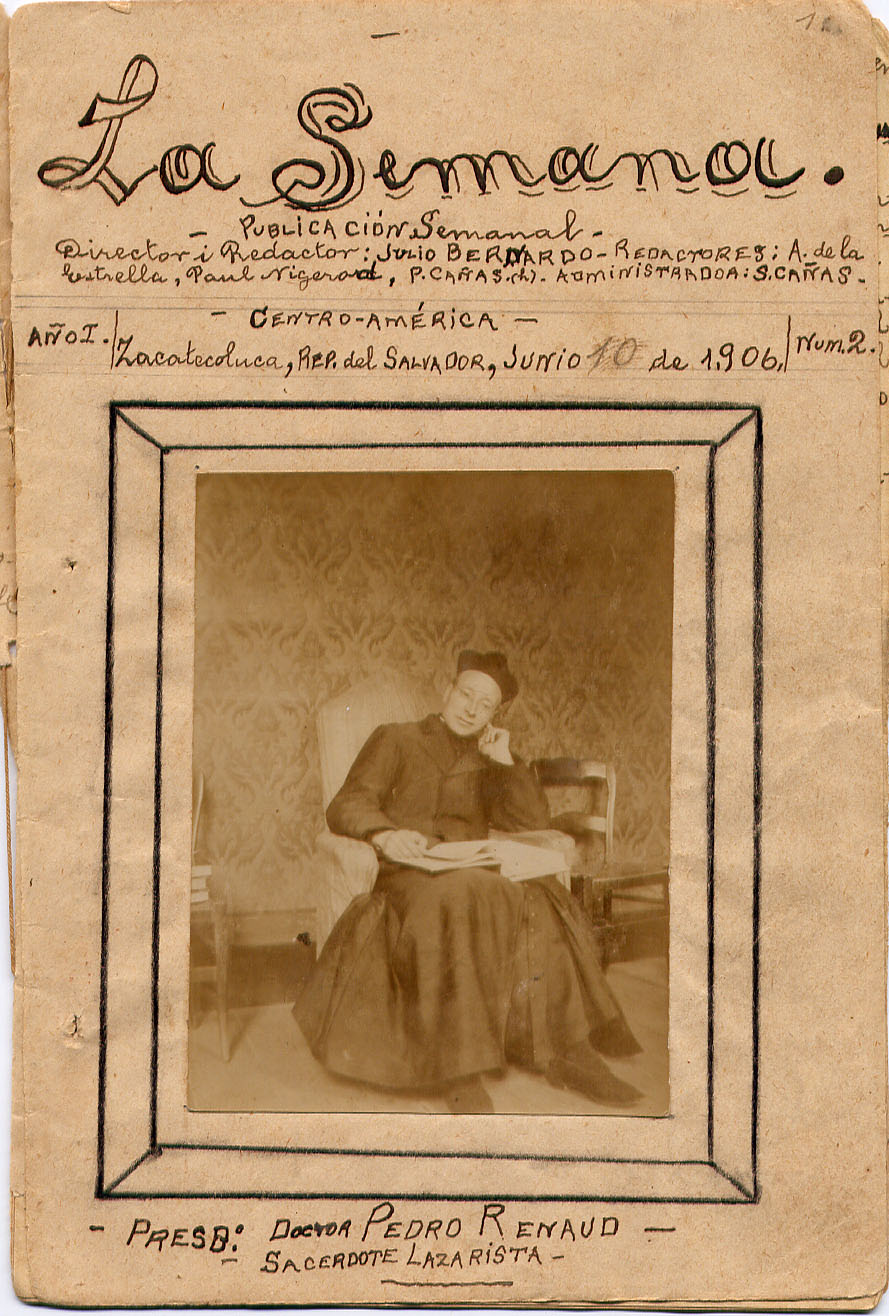 La Semana.
— PUBLICACIÓN Semanal —
Director i Redactor: JULIO BERNARDO - REDACTORES: A. de la
Estrella, Paul Nigerod, P. CAÑAS.(h). ADMINISTRADOA: S. CAÑAS.-
— CENTRO-AMÉRICA —
AÑO I. Zacatecoluca, REP. del SALVADOR, JUNIO 10 de 1.906. Num. 2.
— PRESB:º DOCTOR PEDRO RENAUD —
SACERDOTE LAZARISTA -